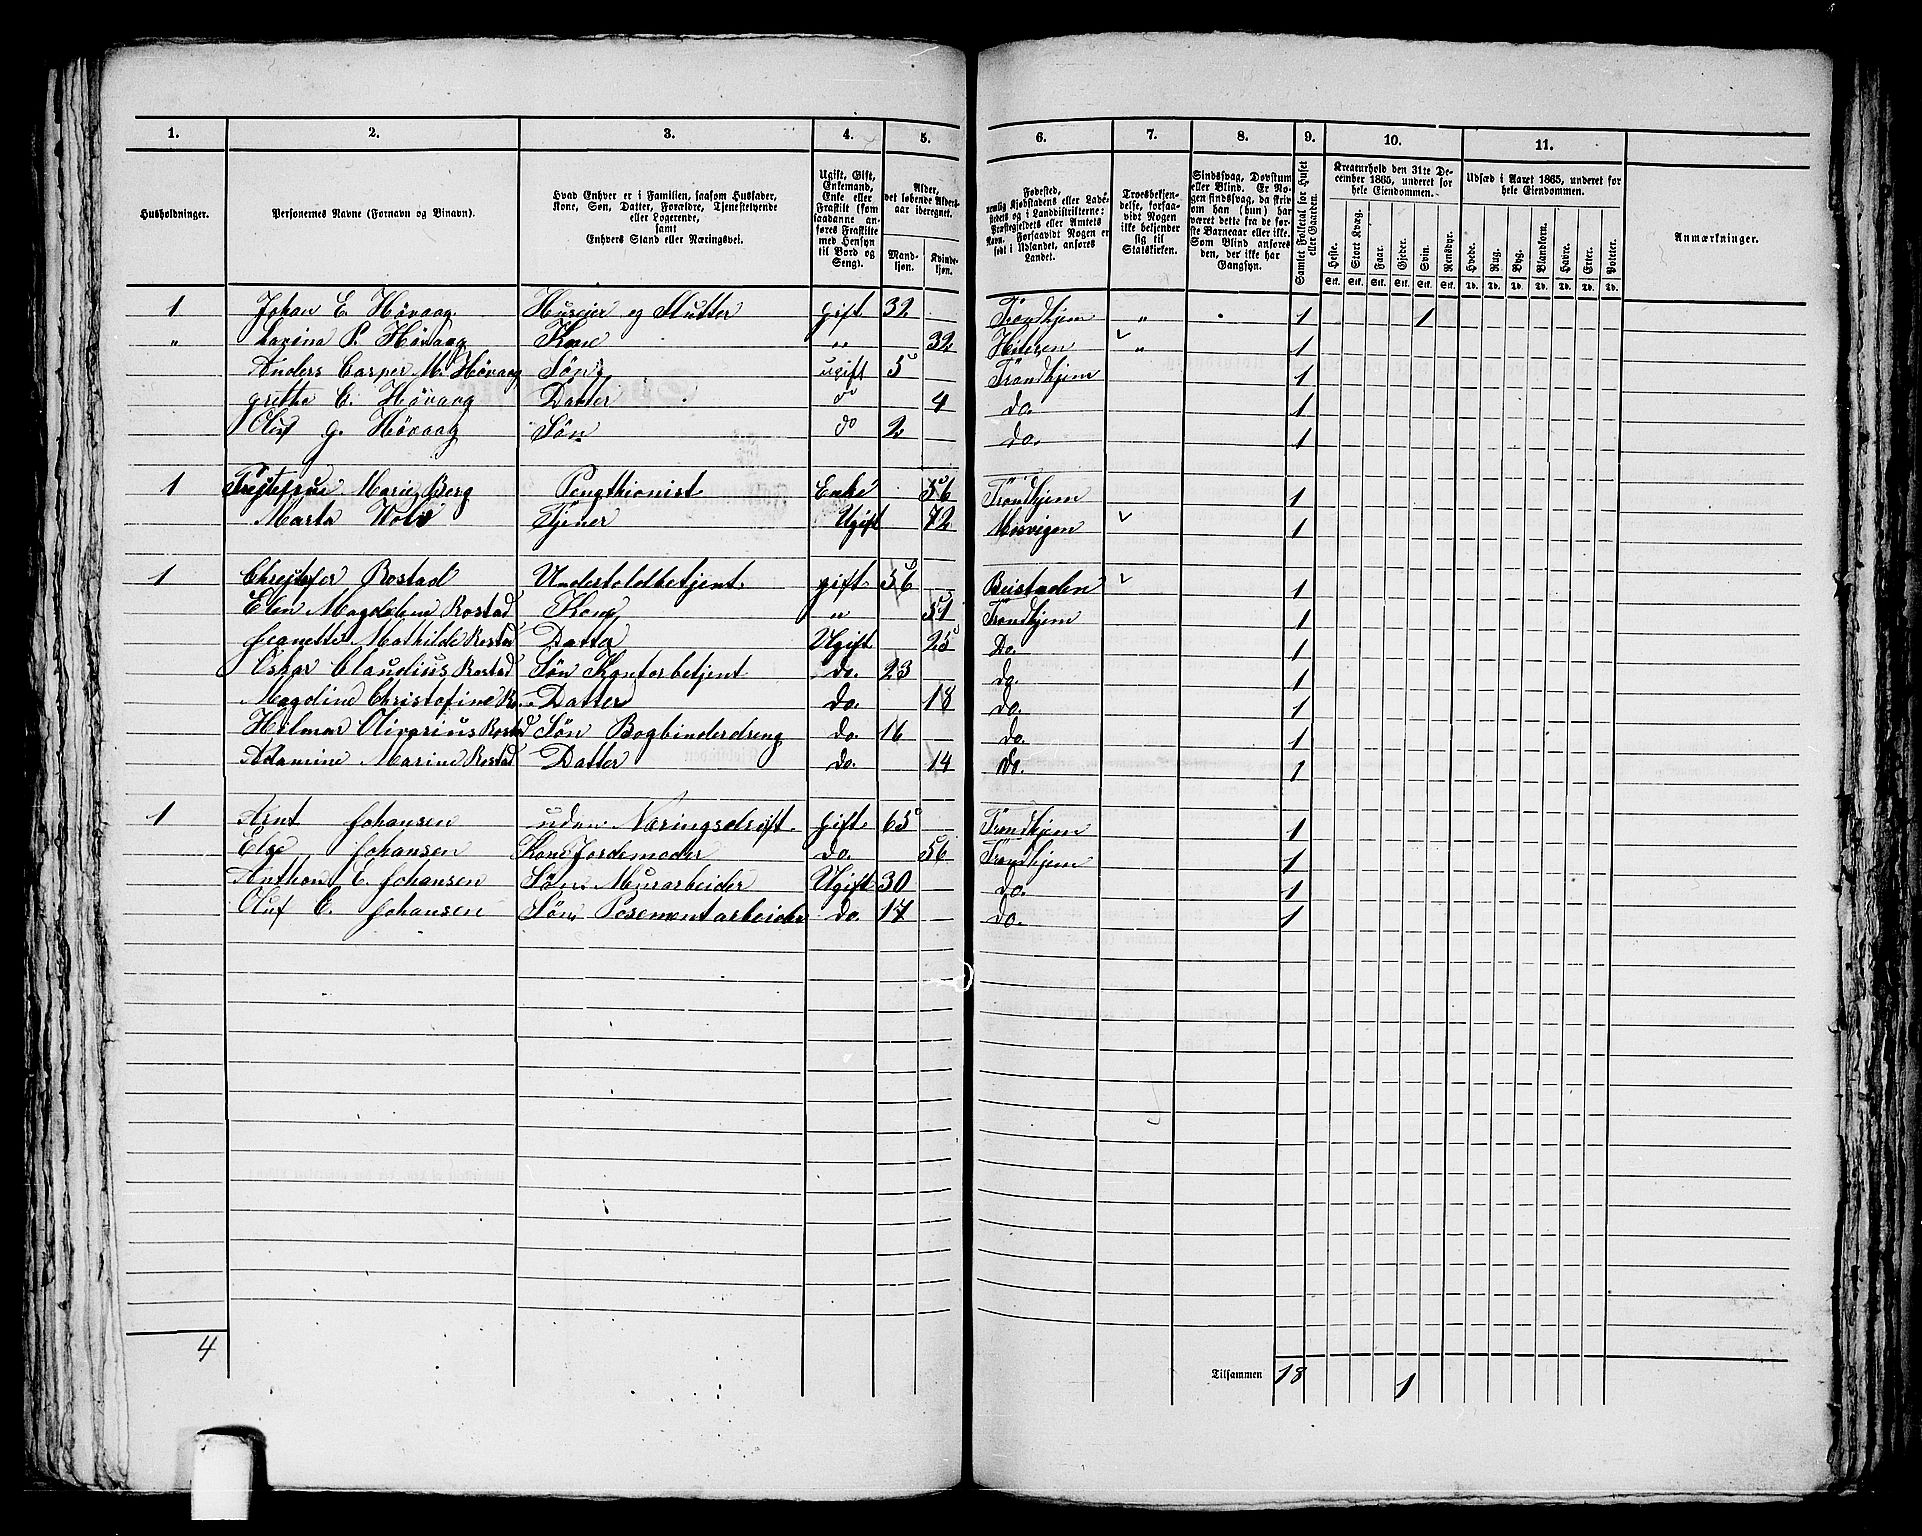 1. 2. 3. 4. 5. 6. 7. 8. 9. 10. 11.
Husholdninger. Personernes Navne (Fornavn og Binavn). Hvad Enhver er i Familien, saasom Husfader, Kone, Søn, Datter, Forældre, Tjenestetyende eller Logerende, samt Enhvers Stand eller Næringsvei. Ugift, Gift, Enkemand, Enke eller Fraskilt (kom saadanne anføres Fraskilte med Hensyn til Bord og Seng). Alder, det løbende Alders-aar iberegnet. Mand-kjøn. Kvinde-kjøn. Fødested, Troesbekjendelse, forsaavidt Nogen ikke bekjender sig til Statskirken. Sindssvag, Døvstum eller Blind. Samlet Folketal for Huset eller Gaarden. Kreaturhold den 31te December 1865, underet for hele Eiendommen. Udsæd i Aaret 1865, underet for hele Eiendommen. Anmærkninger.
Heste. Stort Kvæg. Faar. Gjeder. Svin. Rensdyr. Hvede. Rug. Byg. Blandkorn. Havre. Erter. Poteter.
Stk. Stk. Stk. Stk. Stk. Stk. Td. Td. Td. Td. Td. Td. Td.
1 Johan E. Høvaag Huseier og Slutter gift 32 Trondhjem „ 1 1
„ Lavina P. Høvaag Kone „ 32 Hitteren „ 1
Anders Casper M. Høvaag Søn ugift 5 Trondhjem 1
grethe E. Høvaag Datter do 4 do. 1
Oluf G. Høvaag Søn do 2 do. 1
1 Marie Berg Pengthionist Enke 56 Trondhjem 1
Marta Wold Tjener Ugift 72 Mosvigen 1
1 Christofer Rostad Undertoldbetjent gift 56 Beistaden 1
Elen Magdalene Rostad Kone „ 51 Trondhjem 1
Jeanette Mathilde Rostad Datter Ugift 25 Do. 1
Oskar Claudius Rostad Søn Kontorbetjent do. 23 do. 1
Magdline Christofine R. Datter do. 18 do. 1
Hilmar Olivarius Rostad Søn Bogbinderdreng do. 16 do. 1
Adamine Marine Rostad Datter do. 14 do. 1
1 Arnt Johansen uden Næringsdrift gift 65 Trondhjem 1
Else Johansen Kone Jordemoder do. 56 Trondhjem 1
Anthon E. Johansen Søn Murarbeider Ugift 30 do. 1
Oluf E. Johansen Søn Posementarbeider do. 17 do. 1
4 Tilsammen 18 1